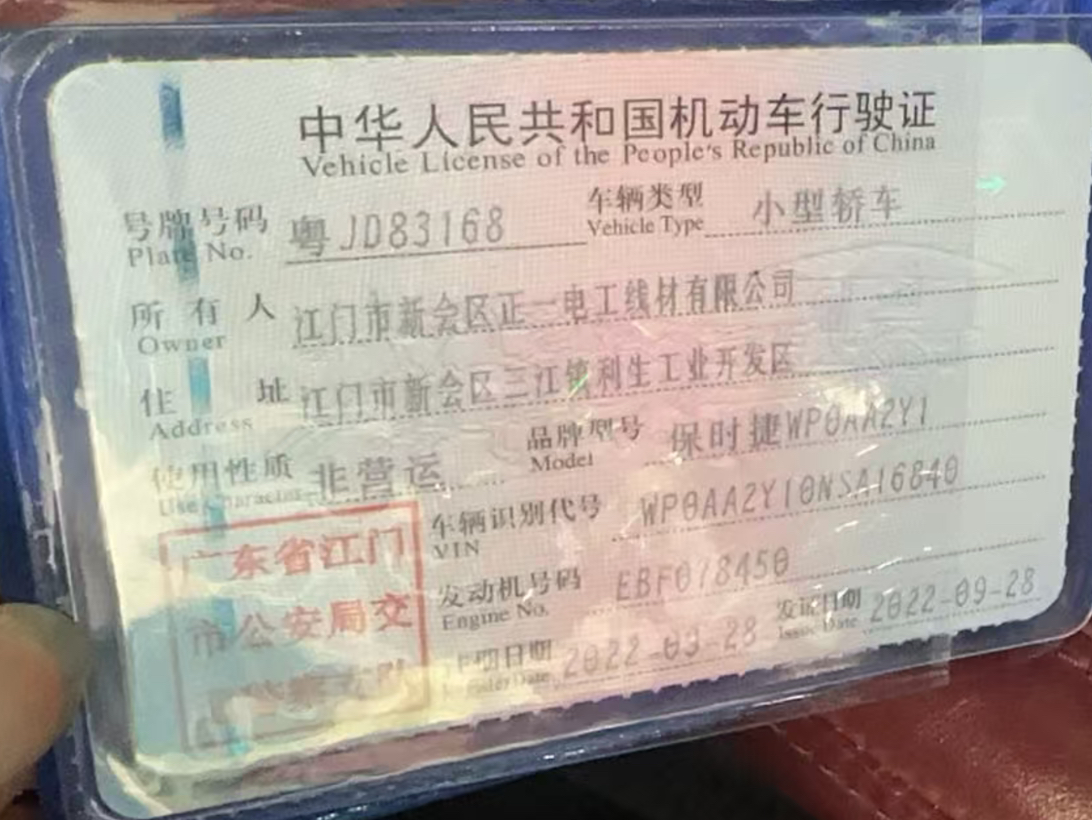 中华人民共和国机动车行驶证
Vehicle License of the People's Republic of China
号牌号码 粤JD83168 车辆类型 小型轿车
Plate No. Vehicle Type
所有人 江门市新会区正一电工线材有限公司
Owner
住址 江门市新会区三江镇利生工业开发区
Address
使用性质 非营运 品牌型号 保时捷WP0AA2Y1
Use Character Model
车辆识别代号 WP0AA2Y10NSA16840
VIN
发动机号码 EBF078450
Engine No.
日期 2022-09-28 发证日期 2022-09-28
Date Issue Date
广东省江门
市公安局交